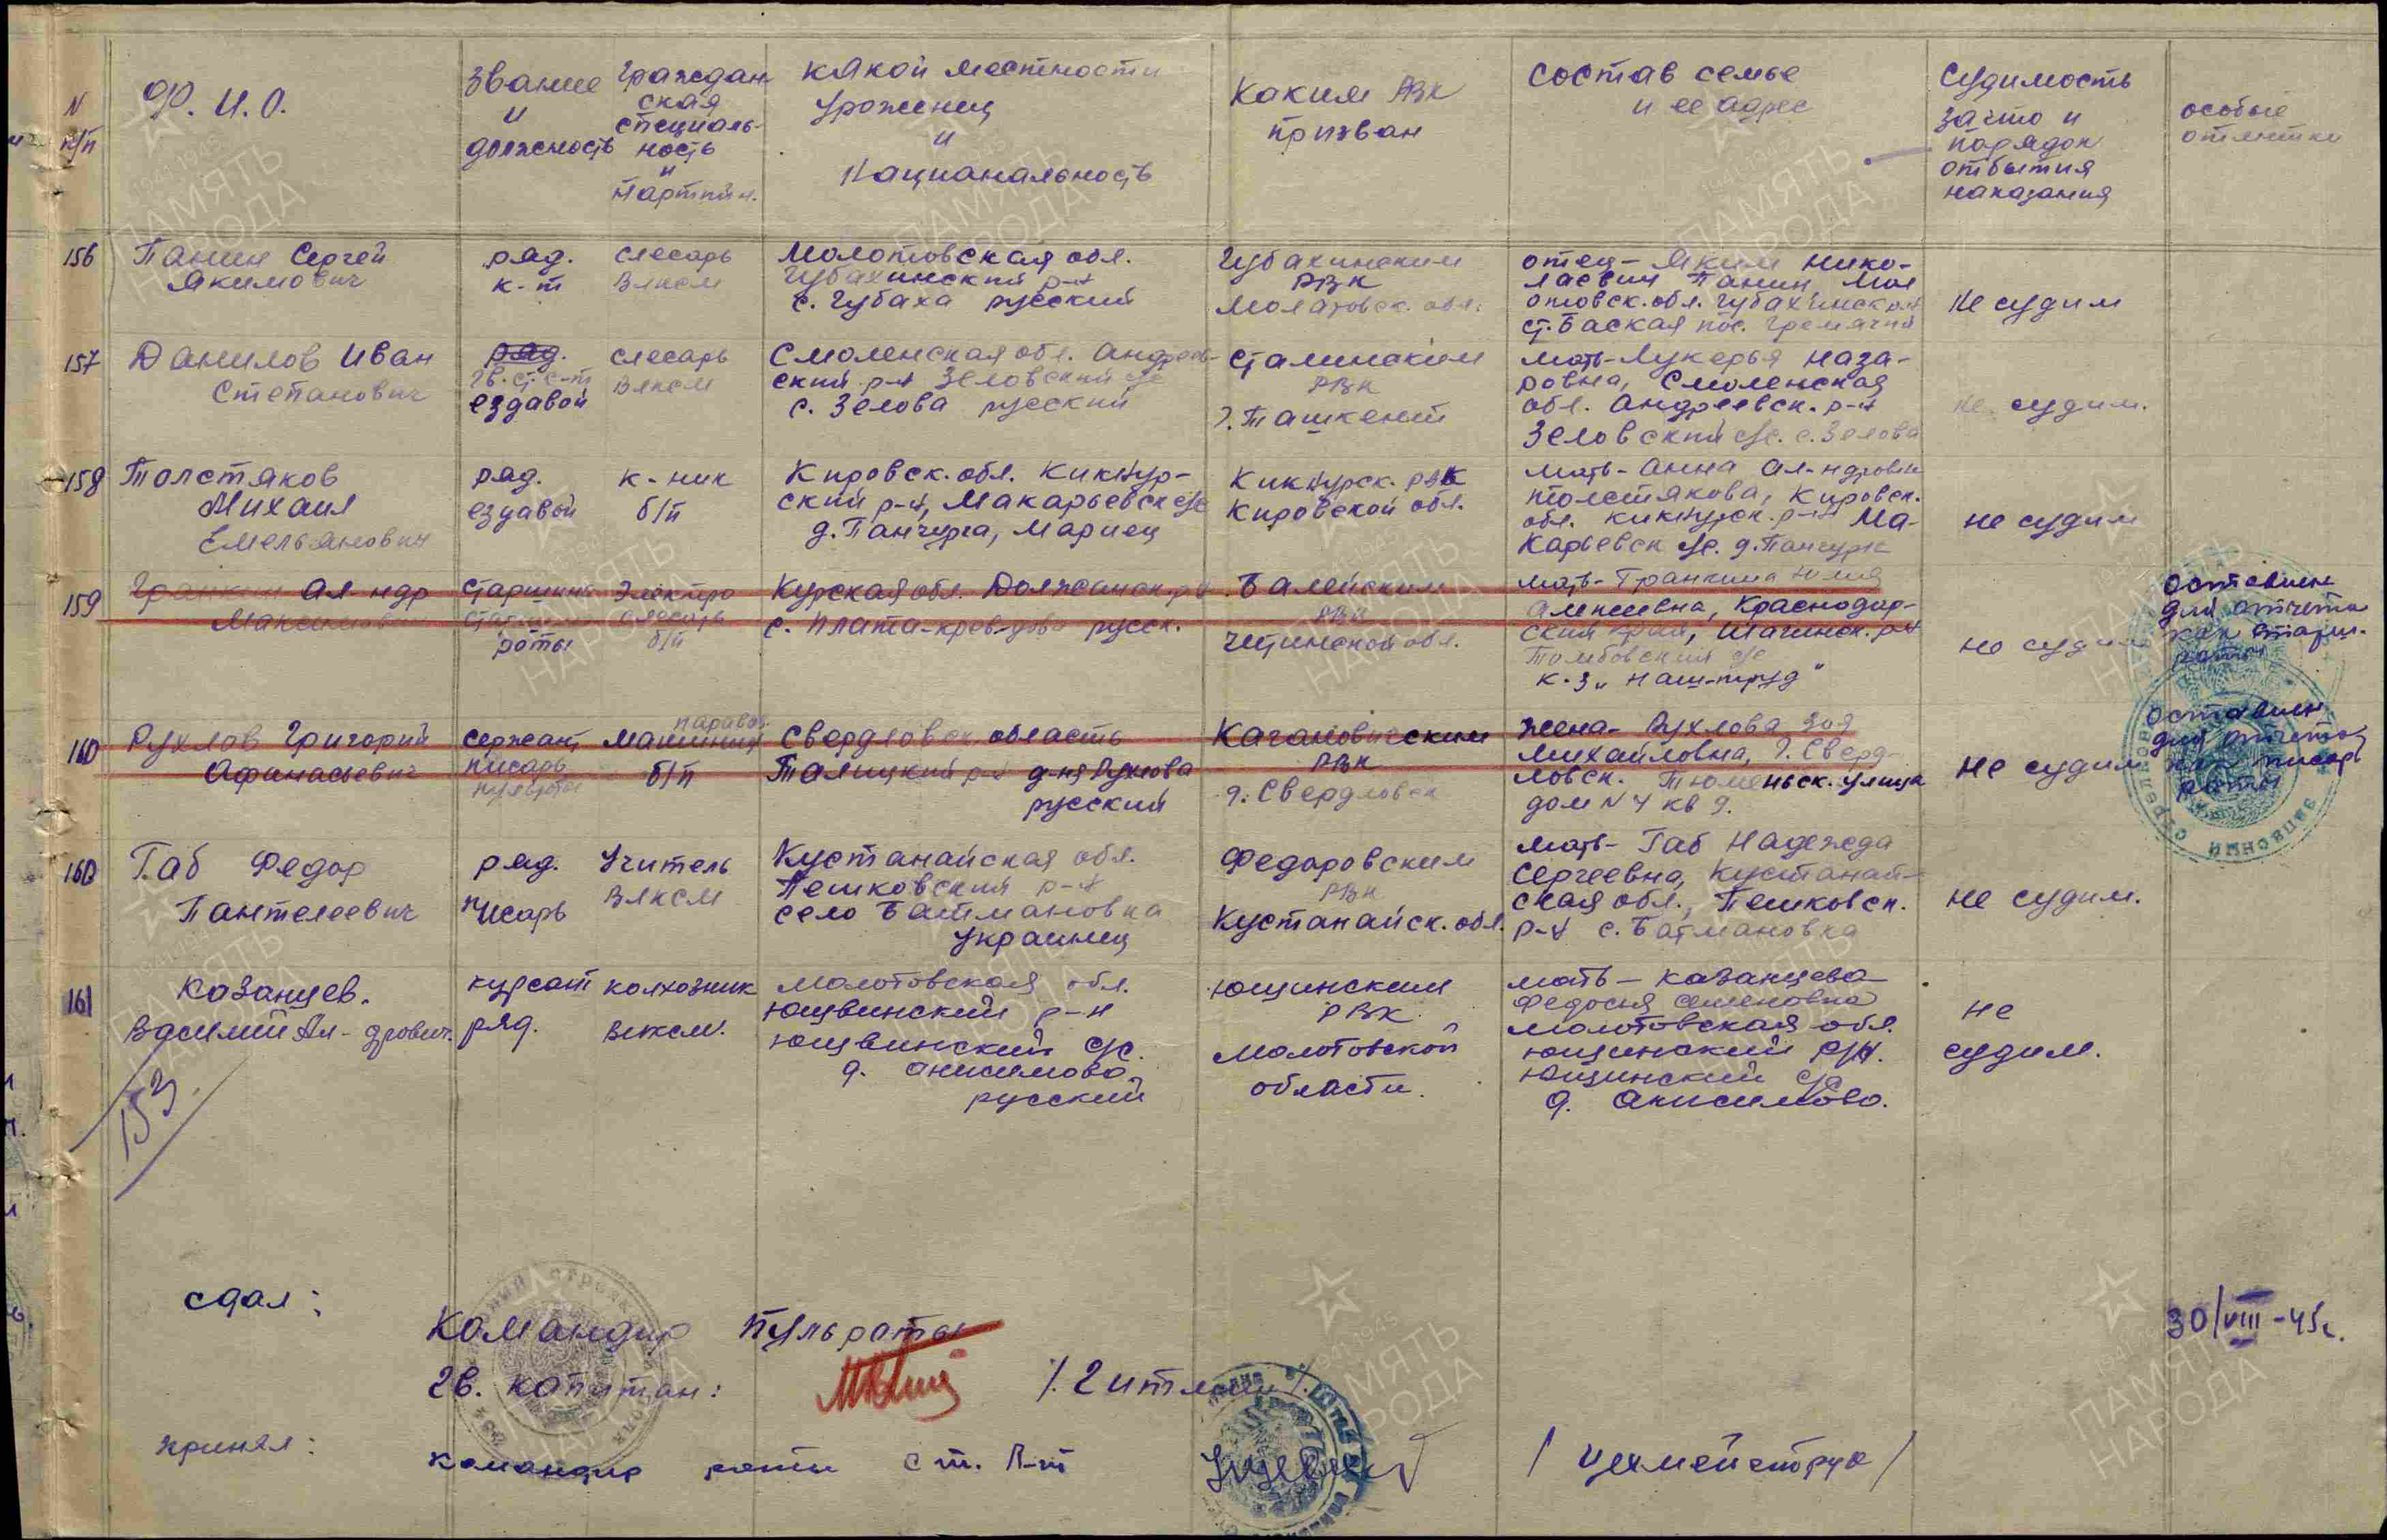 N
п/п
Ф. И. О.
Звание
и
должность
Граждан
ская
специаль-
ность
и
партийн.
какой местности
уроженец
и
национальность
каким РВК
призван
состав семьи
и ее адрес
судимость
за что и
порядок
отбытия
наказания
особые
отметки
156
Панин Сергей
Якимович
ряд.
к-т
слесарь
ВЛКСМ
Молотовская обл.
Губахинский р-н
с. Губаха русский
Губахинским
РВК
Молотовск. обл.
отец - Яким Нико-
лаевич Панин Мол
отовск. обл. Губахинск р-н
ст. Баская пос. Гремячий
не судим
157
Данилов Иван
Степанович
ряд.
гв. ст. с-т
ездавой
слесарь
ВЛКСМ
Смоленская обл. Андреев-
ский р-н Зеловский с/с
с. Зелова русский
Сталинским
РВК
г. Ташкент
мать - Лукерья Наза-
ровна, Смоленская
обл. Андреевск. р-н
Зеловский с/с. с. Зелова
не судим.
158
Толстяков
Михаил
Емельянович
ряд.
ездавой
к-ник
б/п
Кировск. обл. Кикнур-
ский р-н, Макарьевск с/с
д. Панчурга, Мариец
Кикнурск. РВК
Кировской обл.
мать - Анна Ал-ндровна
Толстякова, Кировск.
обл. Кикнурск. р-н Ма-
карьевск с/с. д. Панчурга
не судим
159
Гранкин Ал-ндр
Максимович
старшина
старшина
роты
Электро
слесарь
б/п
Курская обл. Должанск. р-н
с. Плата- русск.
Балейским
РВК
Читинской обл.
мать - Гранкина Юлия
Краснодар-
ский край, р-н
Тамбовский с/с
к-з "Наш-труд"
не судим
оставлен
для отчета
как старш.
роты
160
Рухлов Григорий
Афанасьевич
сержант
писарь
пульроты
паравоз.
машинист
б/п
Свердловск. область
Талицкий р-н д-ня Рухлова
русский
Кагановическим
РВК
г. Свердловск
жена - Рухлова Зоя
Михайловна, г. Сверд-
ловск. Тюменьск. улица
дом N 4 кв 9.
не судим
оставлен
для отчета
как писарь
роты
160
Габ Федор
Пантелеевич
ряд.
писарь
Учитель
ВЛКСМ
Кустанайская обл.
Пешковский р-н
село Батмановка
украинец
Федоровским
РВК
Кустанайск. обл.
мать - Габ Надежда
Сергеевна, Кустанай-
ская обл., Пешковск.
р-н с. Батмановка
не судим.
161
Казанцев.
Василий Ал-дрович.
курсант
ряд.
колхозник
ВЛКСМ.
Молотовская обл.
Юцвинский р-н
Юцвинский с/с.
д. Анисимово.
русский
Ющинским
РВК.
Молотовской
области.
мать - Казанцева
Федосия Семеновна
Молотовская обл.
Ющинский р/н.
Ющинский с/с
д. Анисимово.
не
судим.
153.
сдал:
Командир пульроты
гв. капитан:
/Гитлин/.
30/VIII-45г.
принял:
командир роты ст. л-т
ПАМЯТЬ
НАРОДА